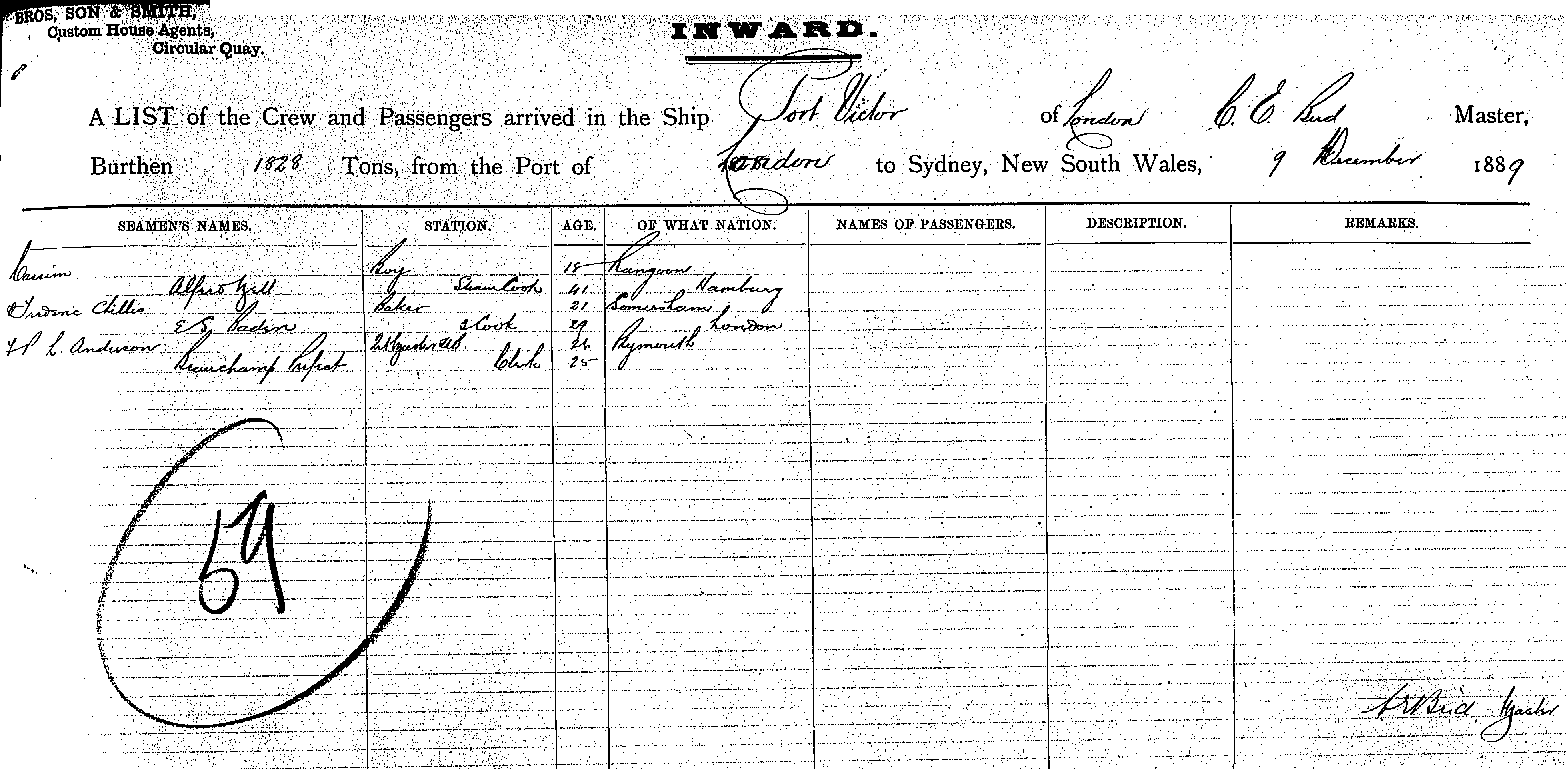 BROS, SON & SMITH,
Custom House Agents,
Circular Quay.
INWARD.
A LIST of the Crew and Passengers arrived in the Ship Port Victor of London C. E. Bird Master,
Burthen 1828 Tons, from the Port of London to Sydney, New South Wales, 9 December 1889
SEAMEN'S NAMES. STATION. AGE. OF WHAT NATION. NAMES OF PASSENGERS. DESCRIPTION. REMARKS.
Cassim Boy 18 Rangoon
Alfred Hill Cook 41 Hamburg
Baker 21 Somersham
2 Cook 29 London
L. Anderson 26 Plymouth
Beauchamp Clerk 25
59
Bird Master